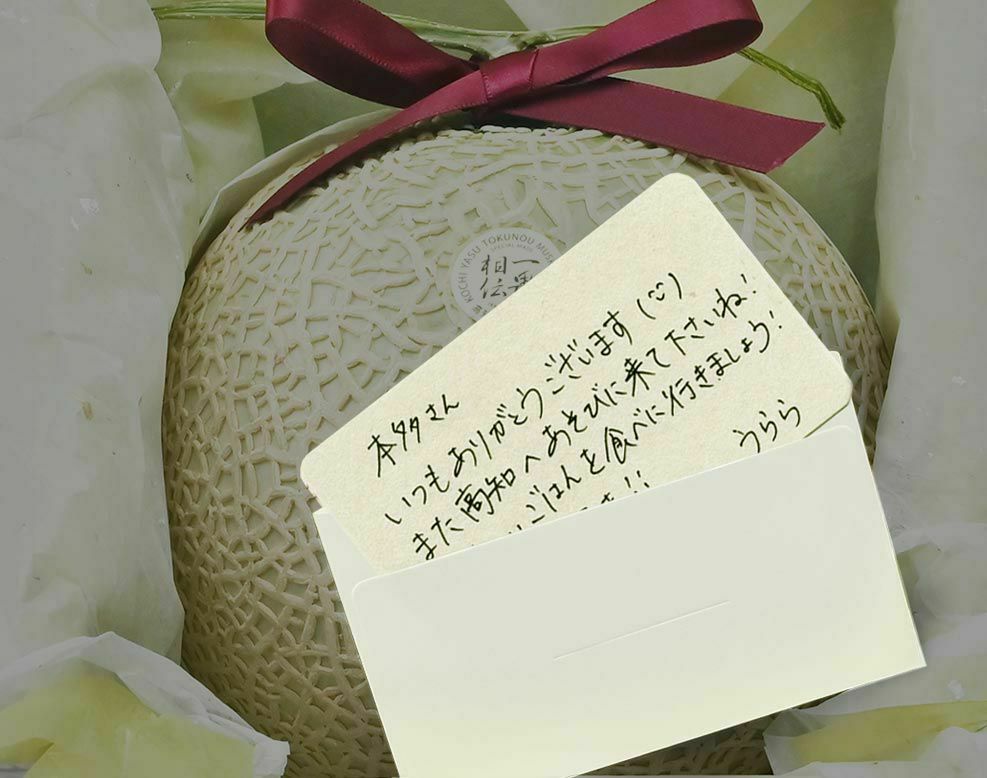 KOCHI YASU TOKUNOU MUS
SPECIAL MADE
一
相伝
本多さん
いつもありがとうございます(🙂)
また高知へあそびに来て下さいね!
ごはんを食べに行きましょう!
うらら